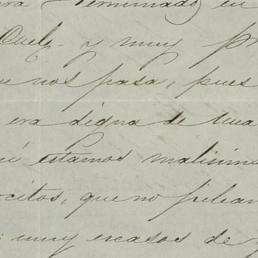 terminado en
y muy pr
nos pasa, pues
era digna de una
estamos malisime
citos, que no pelean
muy escasos de